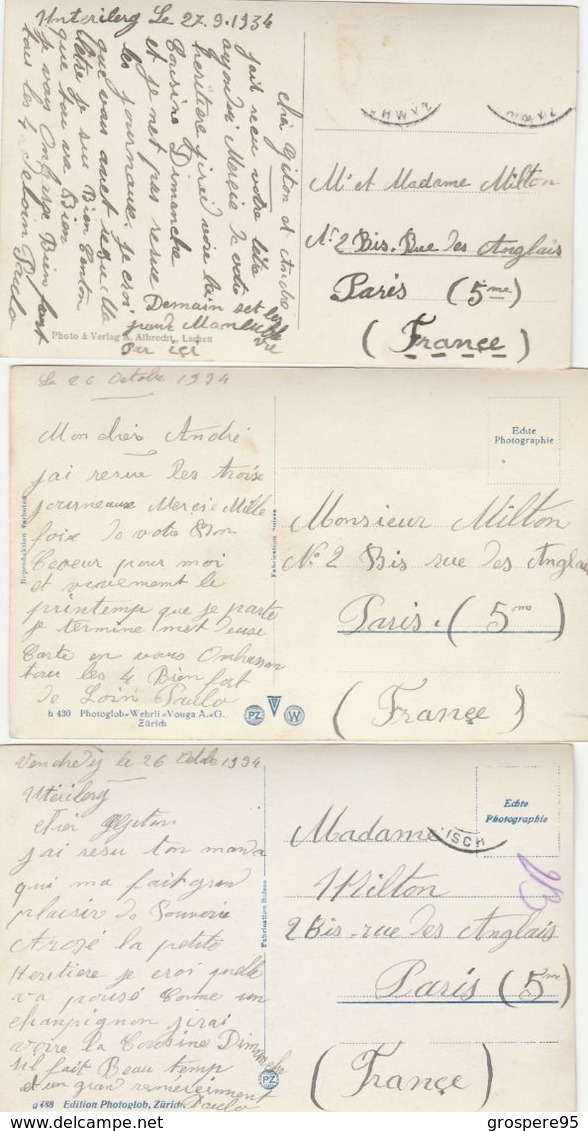 Unteriberg Le 27.9.1934
chér giton et André
jait reçu votre lètre
aujourdui Mercie de votre
heritiere jirai voire la
Cousine Dimanche
et je net pas resue
les journeaux. Je croi
que vous avet resue la
lètre je sui Bien Conton
que tou va Bien
je vous Embrase Bien fort
tous les 4 de loin Paulo
Demain set les
grand Maneuvre
Par ici
Photo & Verlag A. Albrecht, Lachen
SCHWYZ
Mr et Madame Milton
No 2 Bis. Rue des Anglais
Paris (5me)
(France)
Le 20 Octobre 1934
Mon chér André
jai resue les troise
journeaux Mercie Mille
foix de votre Bon
Coeur pour moi
et vraiement le
printemp que je parte
je termine met deuse
Carte en vous Embrassan
tou les 4 Bien fort
de Loin Paulo
Reproduktion verboten
Fabrication Suisse
h 430 Photoglob-Wehrli-Vouga A.-G.
Zürich
PZ
W
Echte
Photographie
Monsieur Milton
No 2 Bis rue des Anglais
Paris. (5me)
(France)
Vendredy le 26 Octobre 1934
Utériberg
chér Giton
jai resu ton manda
qui ma fait gran
plaisir de Souvenir
Arozé la petite
Heritiere je croi quelle
va pousé Comme un
champignon jirai
voire la Cousine Dimanche
sil fait Beau temp
et un gran remerciement
Paulo
Fabrication Suisse
g 488 Edition Photoglob, Zürich
PZ
Echte
Photographie
Madame
Milton
2 Bis. rue des Anglais
Paris (5me)
(France)
delcampe.net
grospere95